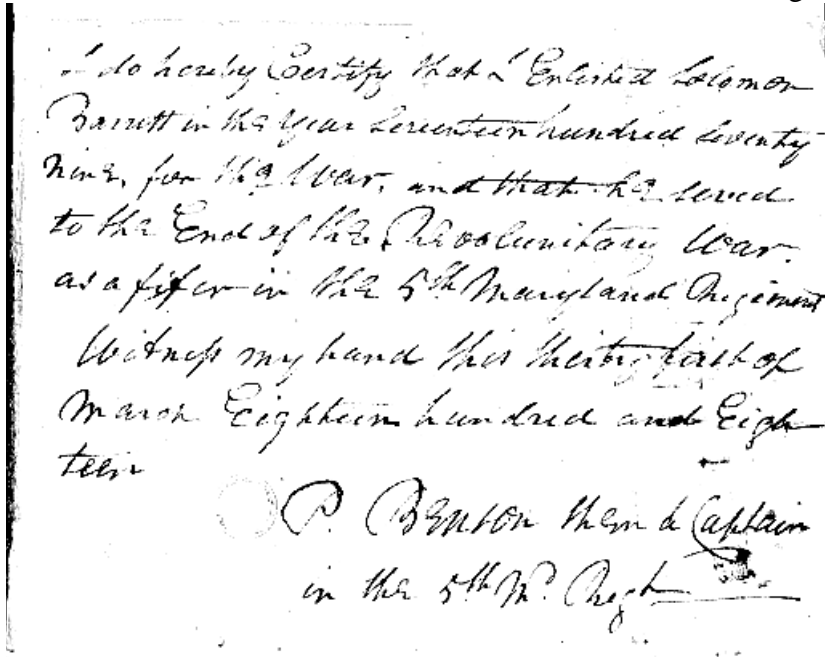 I do hereby Certify that I Enlisted Solomon
Barrett in the Year Seventeen hundred Seventy
Nine, for the War, and that he served
to the End of the Revolunitary War.
as a fifer in the 5th Maryland Regiment
Witness my hand this thirty first of
March Eighteen hundred and Eigh
teen
P. Benton then a Captain
in the 5th Md Regt